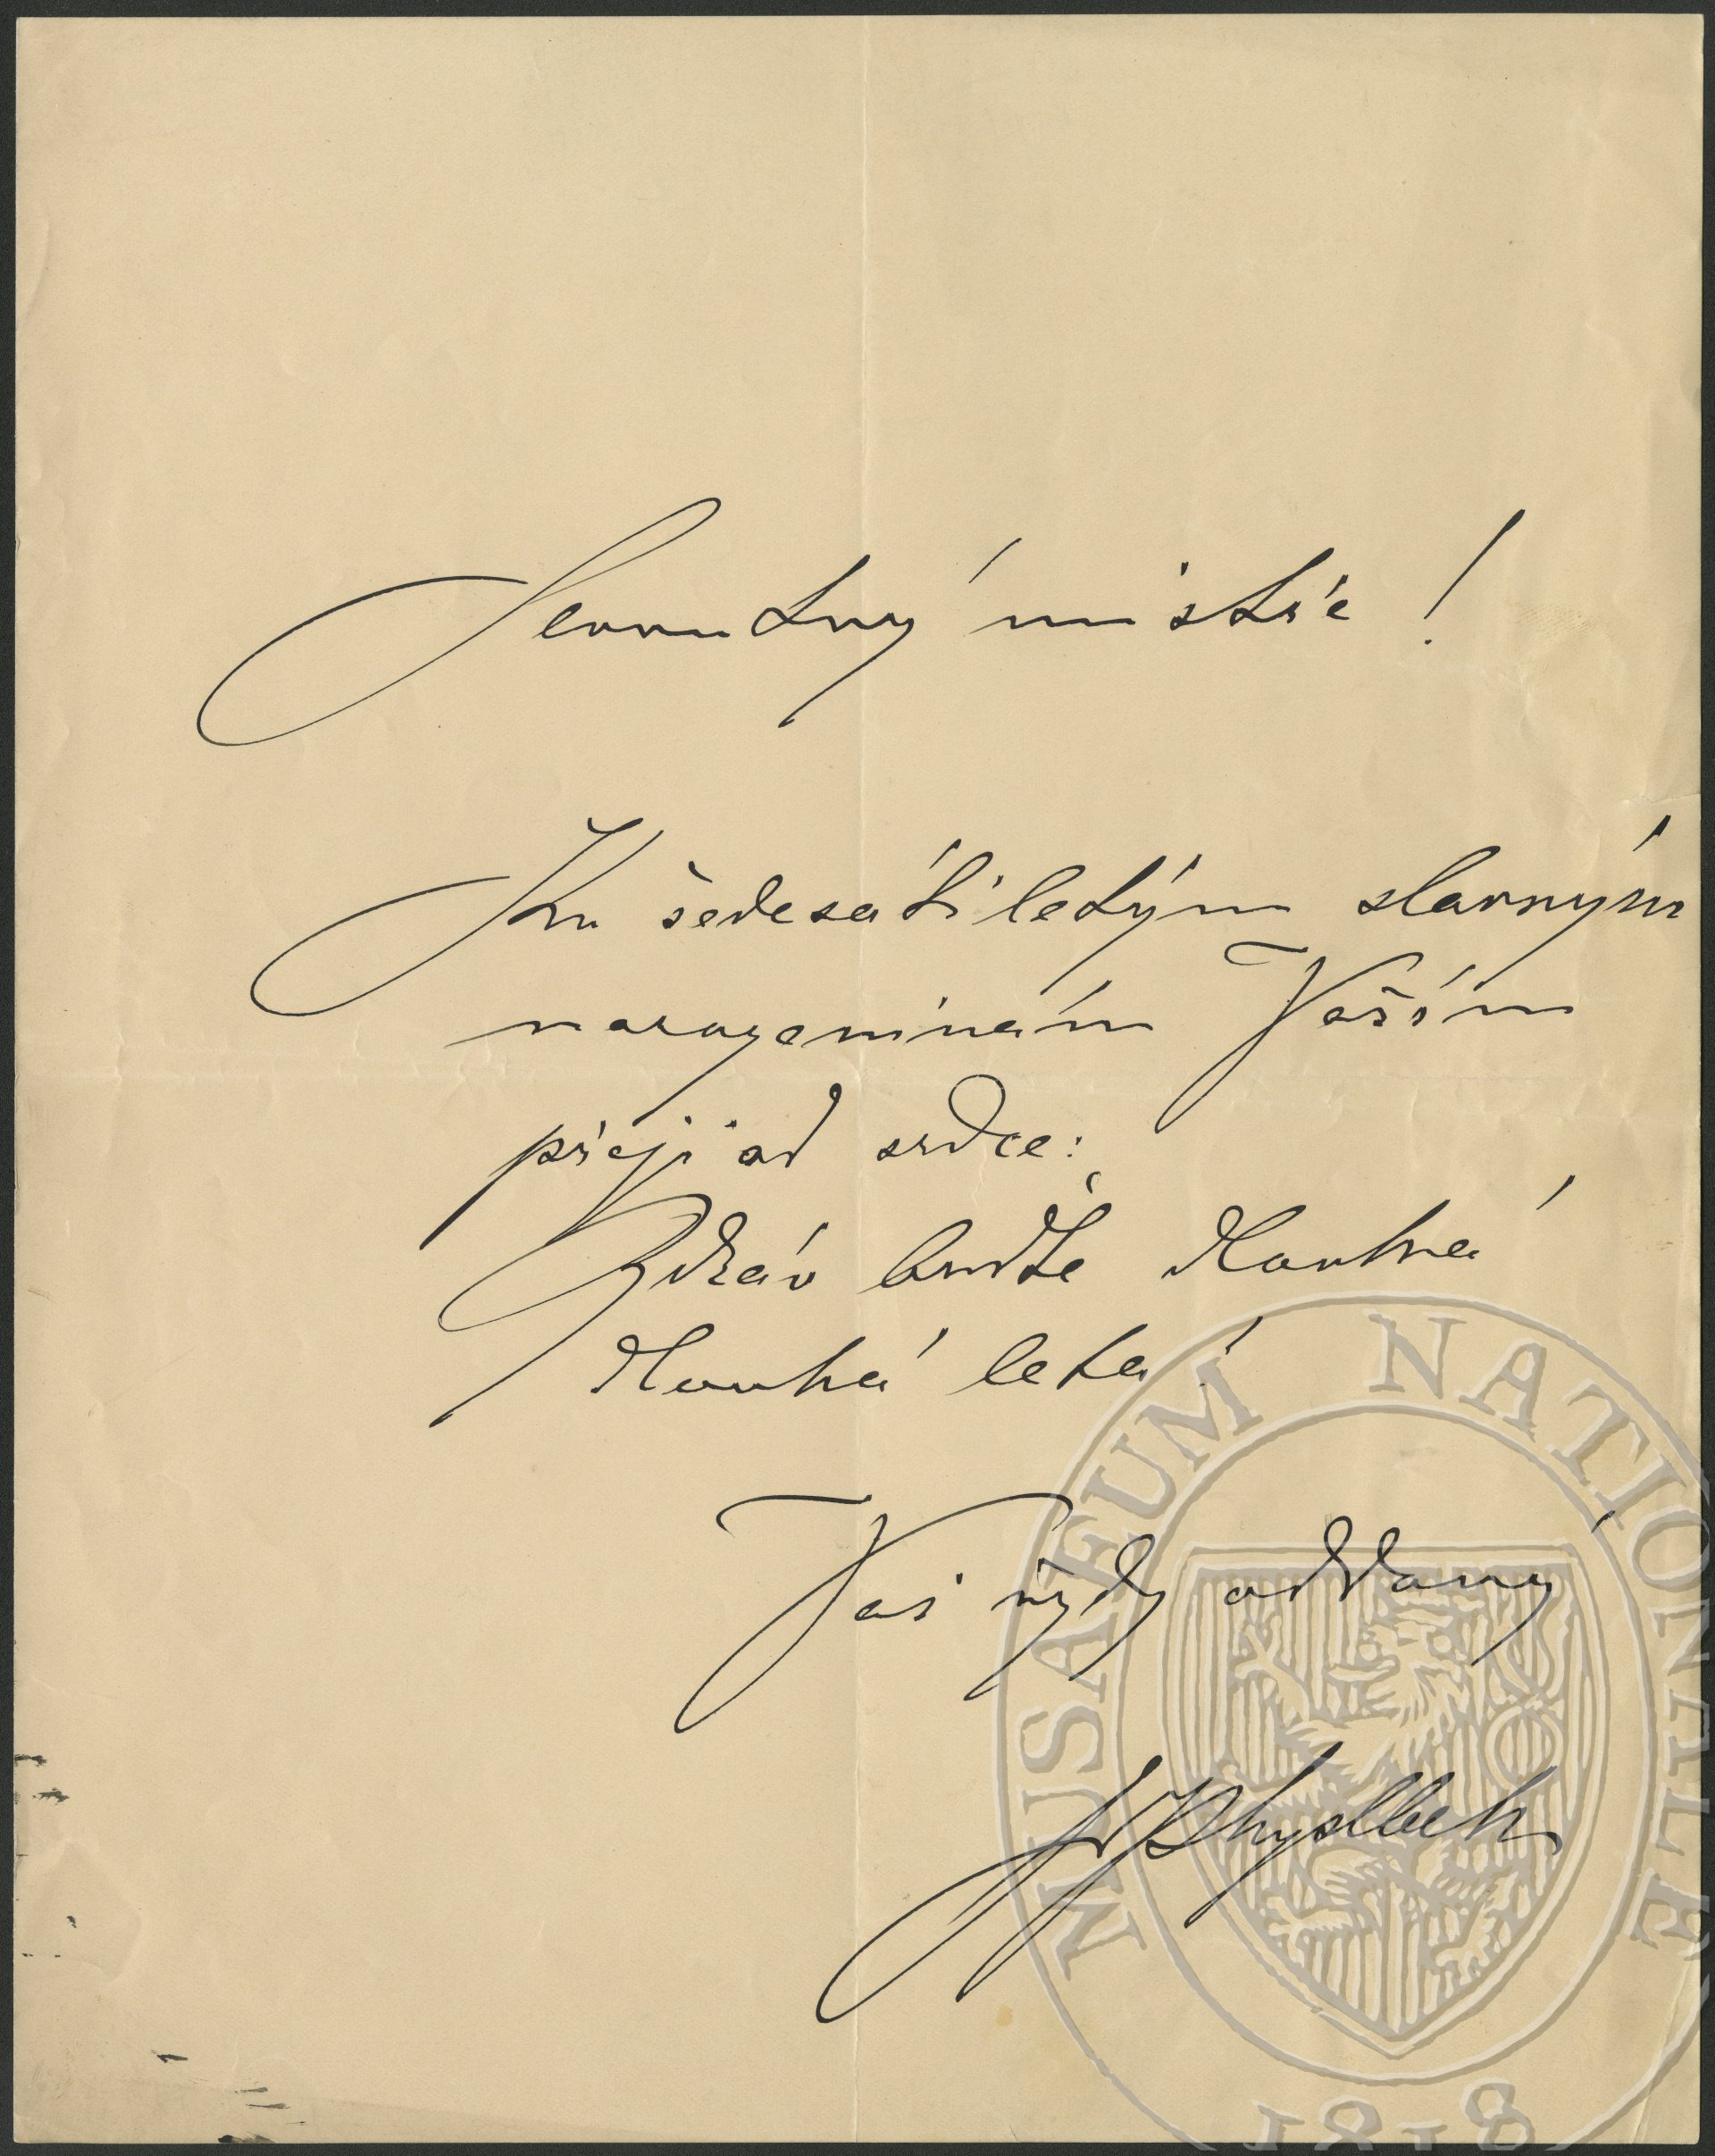 Slovutný mistře!
Ku šedesátiletým slavným
narozeninám Vaším
přeji od srdce:
Zdráv buďte dlouhá
dlouhá leta!
Váš vždy oddaný
JVMyslbek
MUSAEUM NATIONALE
1818